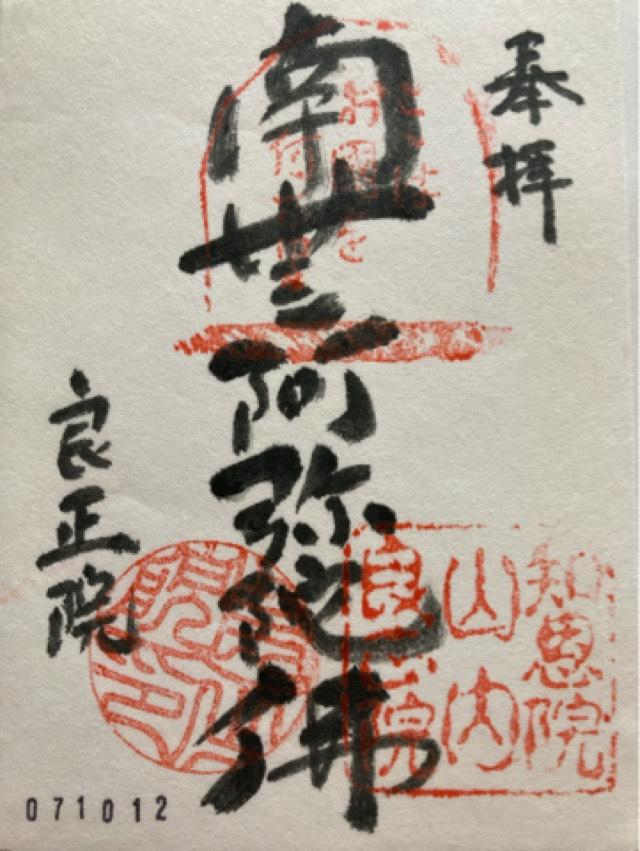 奉拝
南無阿弥陀佛
良正院
知恩院
山内
良正院
071012